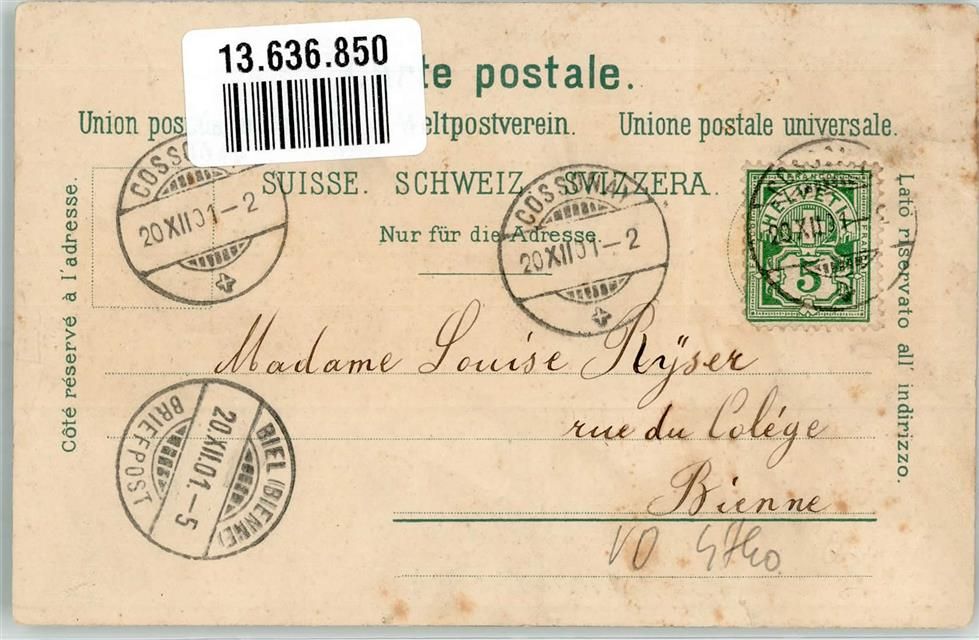 13.636.850
postale.
Union Weltpostverein. Unione postale universale.
SUISSE. SCHWEIZ. SVIZZERA.
Nur für die Adresse.
Côté réservé à l'adresse.
Lato riservato all' indirizzo.
COSSONAY
20 XII 01-2
COSSONAY
20 XII 01-2
HELVETIA
20 XII 01
5
Madame Louise Rÿser
rue du Colége
Bienne
BIEL (BIENNE)
20.XII.01.-5
BRIEFPOST
VO